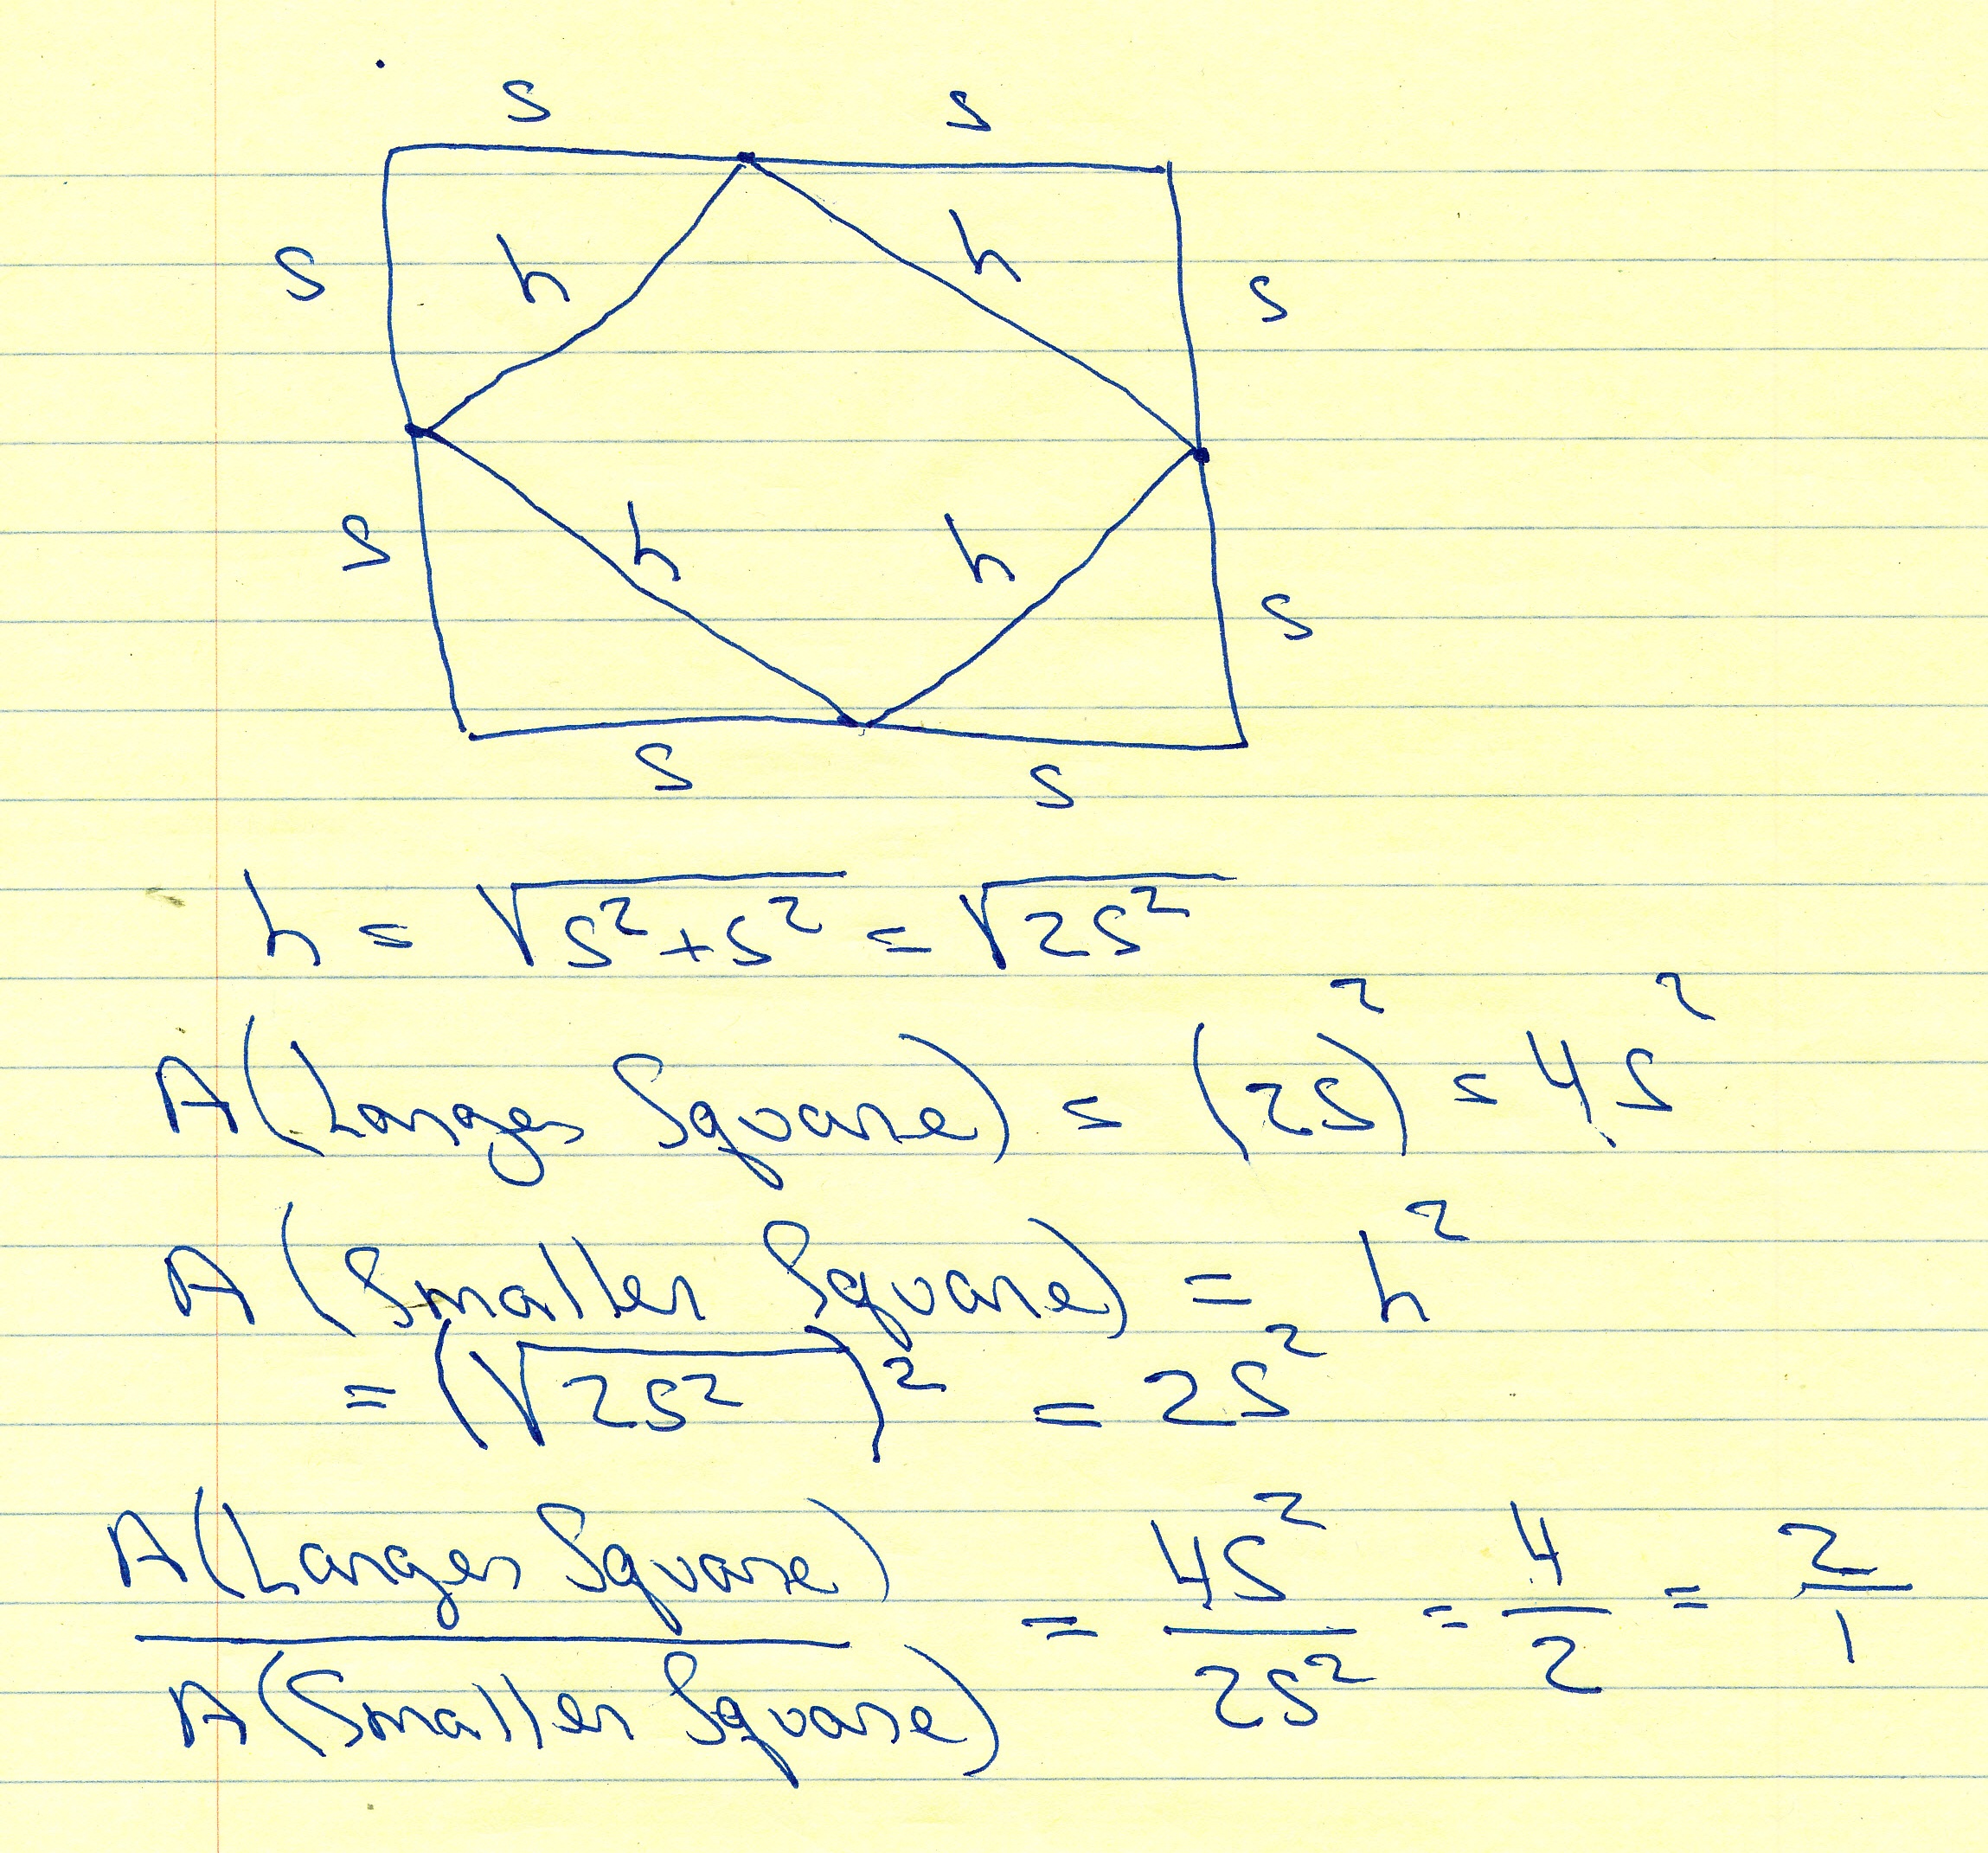 s s
s h h s
s h h s
s s
h = √s²+s² = √2s²
A(Larger Square) = (2s)² = 4s²
A (Smaller Square) = h²
= (√2s²)² = 2s²
A(Larger Square) / A(Smaller Square) = 4s²/2s² = 4/2 = 2/1